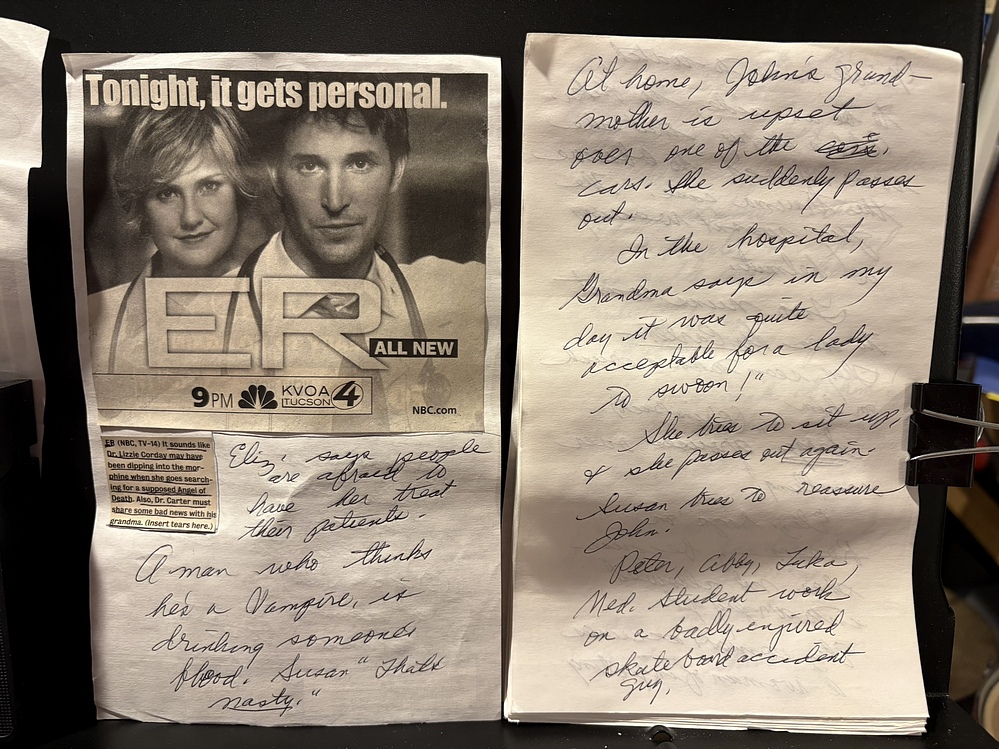 Tonight, it gets personal.
ER
ALL NEW
9PM KVOA
TUCSON 4
NBC.com
ER (NBC, TV-14) It sounds like
Dr. Lizzie Corday may have
been dipping into the mor-
phine when she goes search-
ing for a supposed Angel of
Death. Also, Dr. Carter must
share some bad news with his
grandma. (Insert tears here.)
Eliz. says people
are afraid to
have her treat
their patients.
A man who thinks
he's a Vampire, is
drinking someone's
blood. Susan "That's
nasty."
At home, John's grand-
mother is upset
over one of the
cars. She suddenly passes
out.
In the hospital,
Grandma says in my
day it was quite
acceptable for a lady
to swoon!"
She tries to sit up,
& she passes out again.
Susan tries to reassure
John.
Peter, Abby, Luka,
Med. Student work
on a badly injured
skateboard accident
guy.